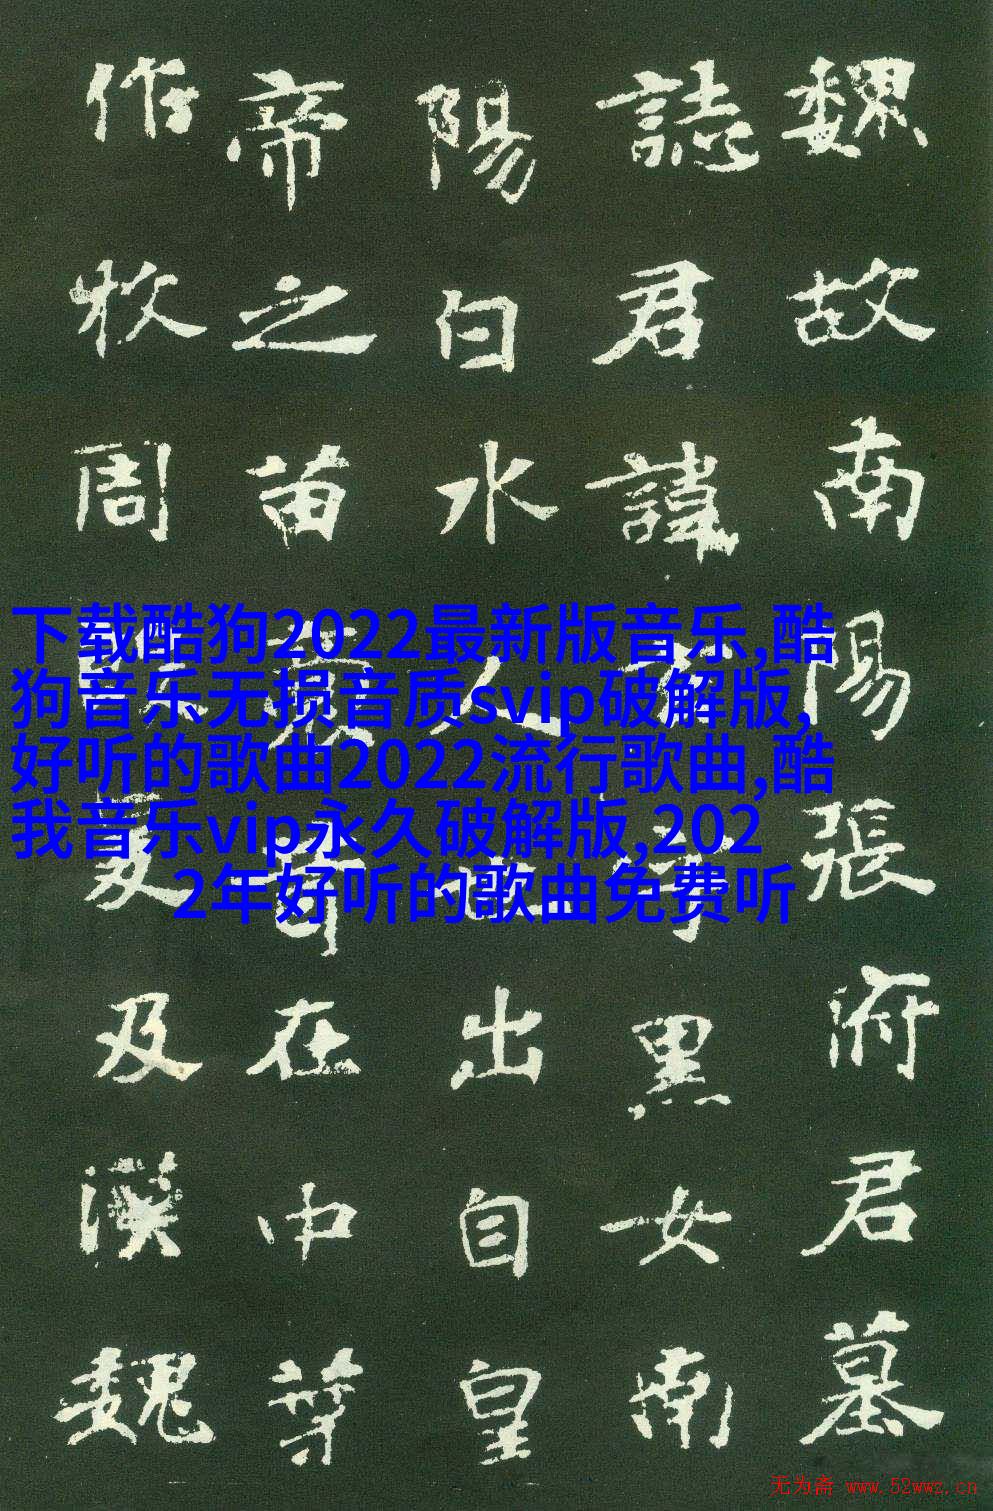 魏故南陽張府君墓
誌君諱黑女南
陽白水人也出自皇
帝之苗裔昔在中
作牧周及漢魏
下载酷狗2022最新版音乐,酷
狗音乐无损音质svip破解版,
好听的歌曲2022流行歌曲,酷
我音乐vip永久破解版,202
2年好听的歌曲免费听
无为斋 www.52wwz.cn